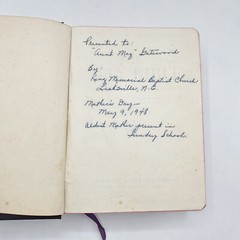 Presented to:
"Aunt Meg" Gatewood
By:
King Memorial Baptist Church
Leaksville, N.C.
Mother's Day—
May 9, 1948
Oldest Mother present in
Sunday School.